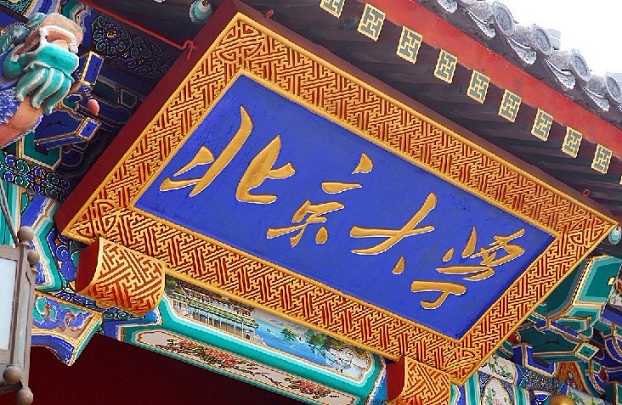 北京大学